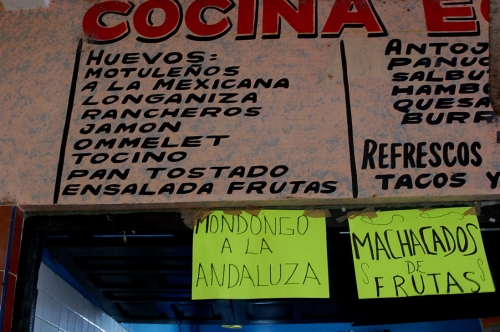 COCINA E
HUEVOS:
MOTULEÑOS
A LA MEXICANA
LONGANIZA
RANCHEROS
JAMON
OMMELET
TOCINO
PAN TOSTADO
ENSALADA FRUTAS
ANTOJ
PANUC
SALBU
HAMBU
QUESA
BURR
REFRESCOS
TACOS Y
MONDONGO
A LA
ANDALUZA
MACHACADOS
DE
FRUTAS